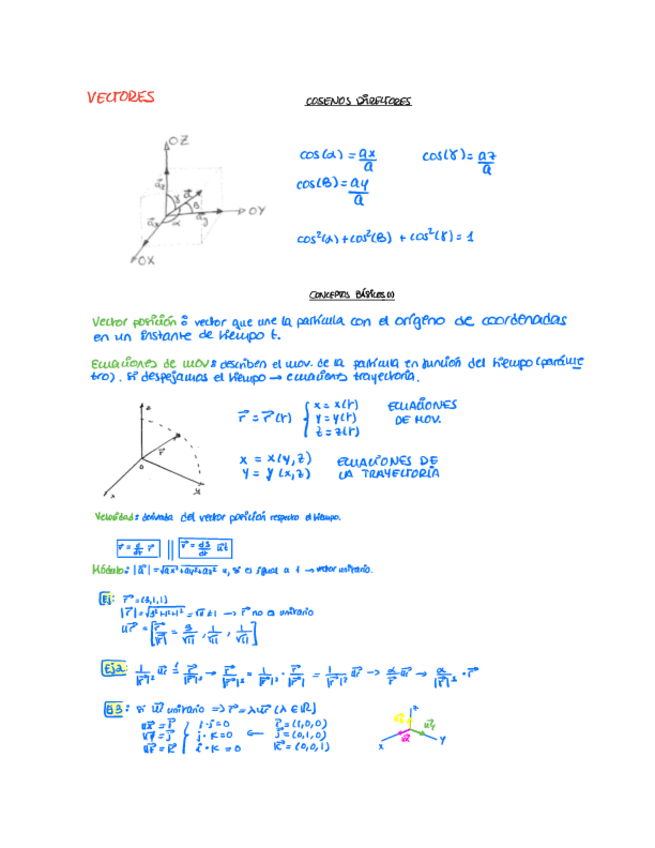 VECTORES
COSENOS DIRECTORES
OZ
OY
OX
cos(α) = ax/a
cos(γ) = az/a
cos(β) = ay/a
cos²(α) + cos²(β) + cos²(γ) = 1
CONCEPTOS BÁSICOS(1)
Vector posición: vector que une la partícula con el orígeno de coordenadas
en un instante de tiempo t.
Ecuaciones de mov: describen el mov. de la partícula en función del tiempo (paráme
tro). Si despejamos el tiempo → ecuaciones trayectoria.
r⃗ = r⃗(t) { x = x(t)
y = y(t)
z = z(t)
ECUACIONES
DE MOV.
x = x(y,z)
y = y(x,z)
ECUACIONES DE
LA TRAYECTORIA
Velocidad: derivada del vector posición respecto el tiempo.
Módulo: |a⃗| = √ax²+ay²+az² y, si es igual a 1 → vector unitario.
Ej: r⃗ = (3,1,1)
|r⃗| = √3²+1²+1² = √11 ≠ 1 → r⃗ no es unitario
u⃗r = [r⃗/|r⃗| = 3/√11, 1/√11, 1/√11]
Ej 2:
Ej 3: si u⃗ unitario ⇒ r⃗ = λu⃗r (λ ∈ ℝ)
i · j = 0
i⃗ = (1,0,0)
j · k = 0
j⃗ = (0,1,0)
i · k = 0
k⃗ = (0,0,1)
x
y
z